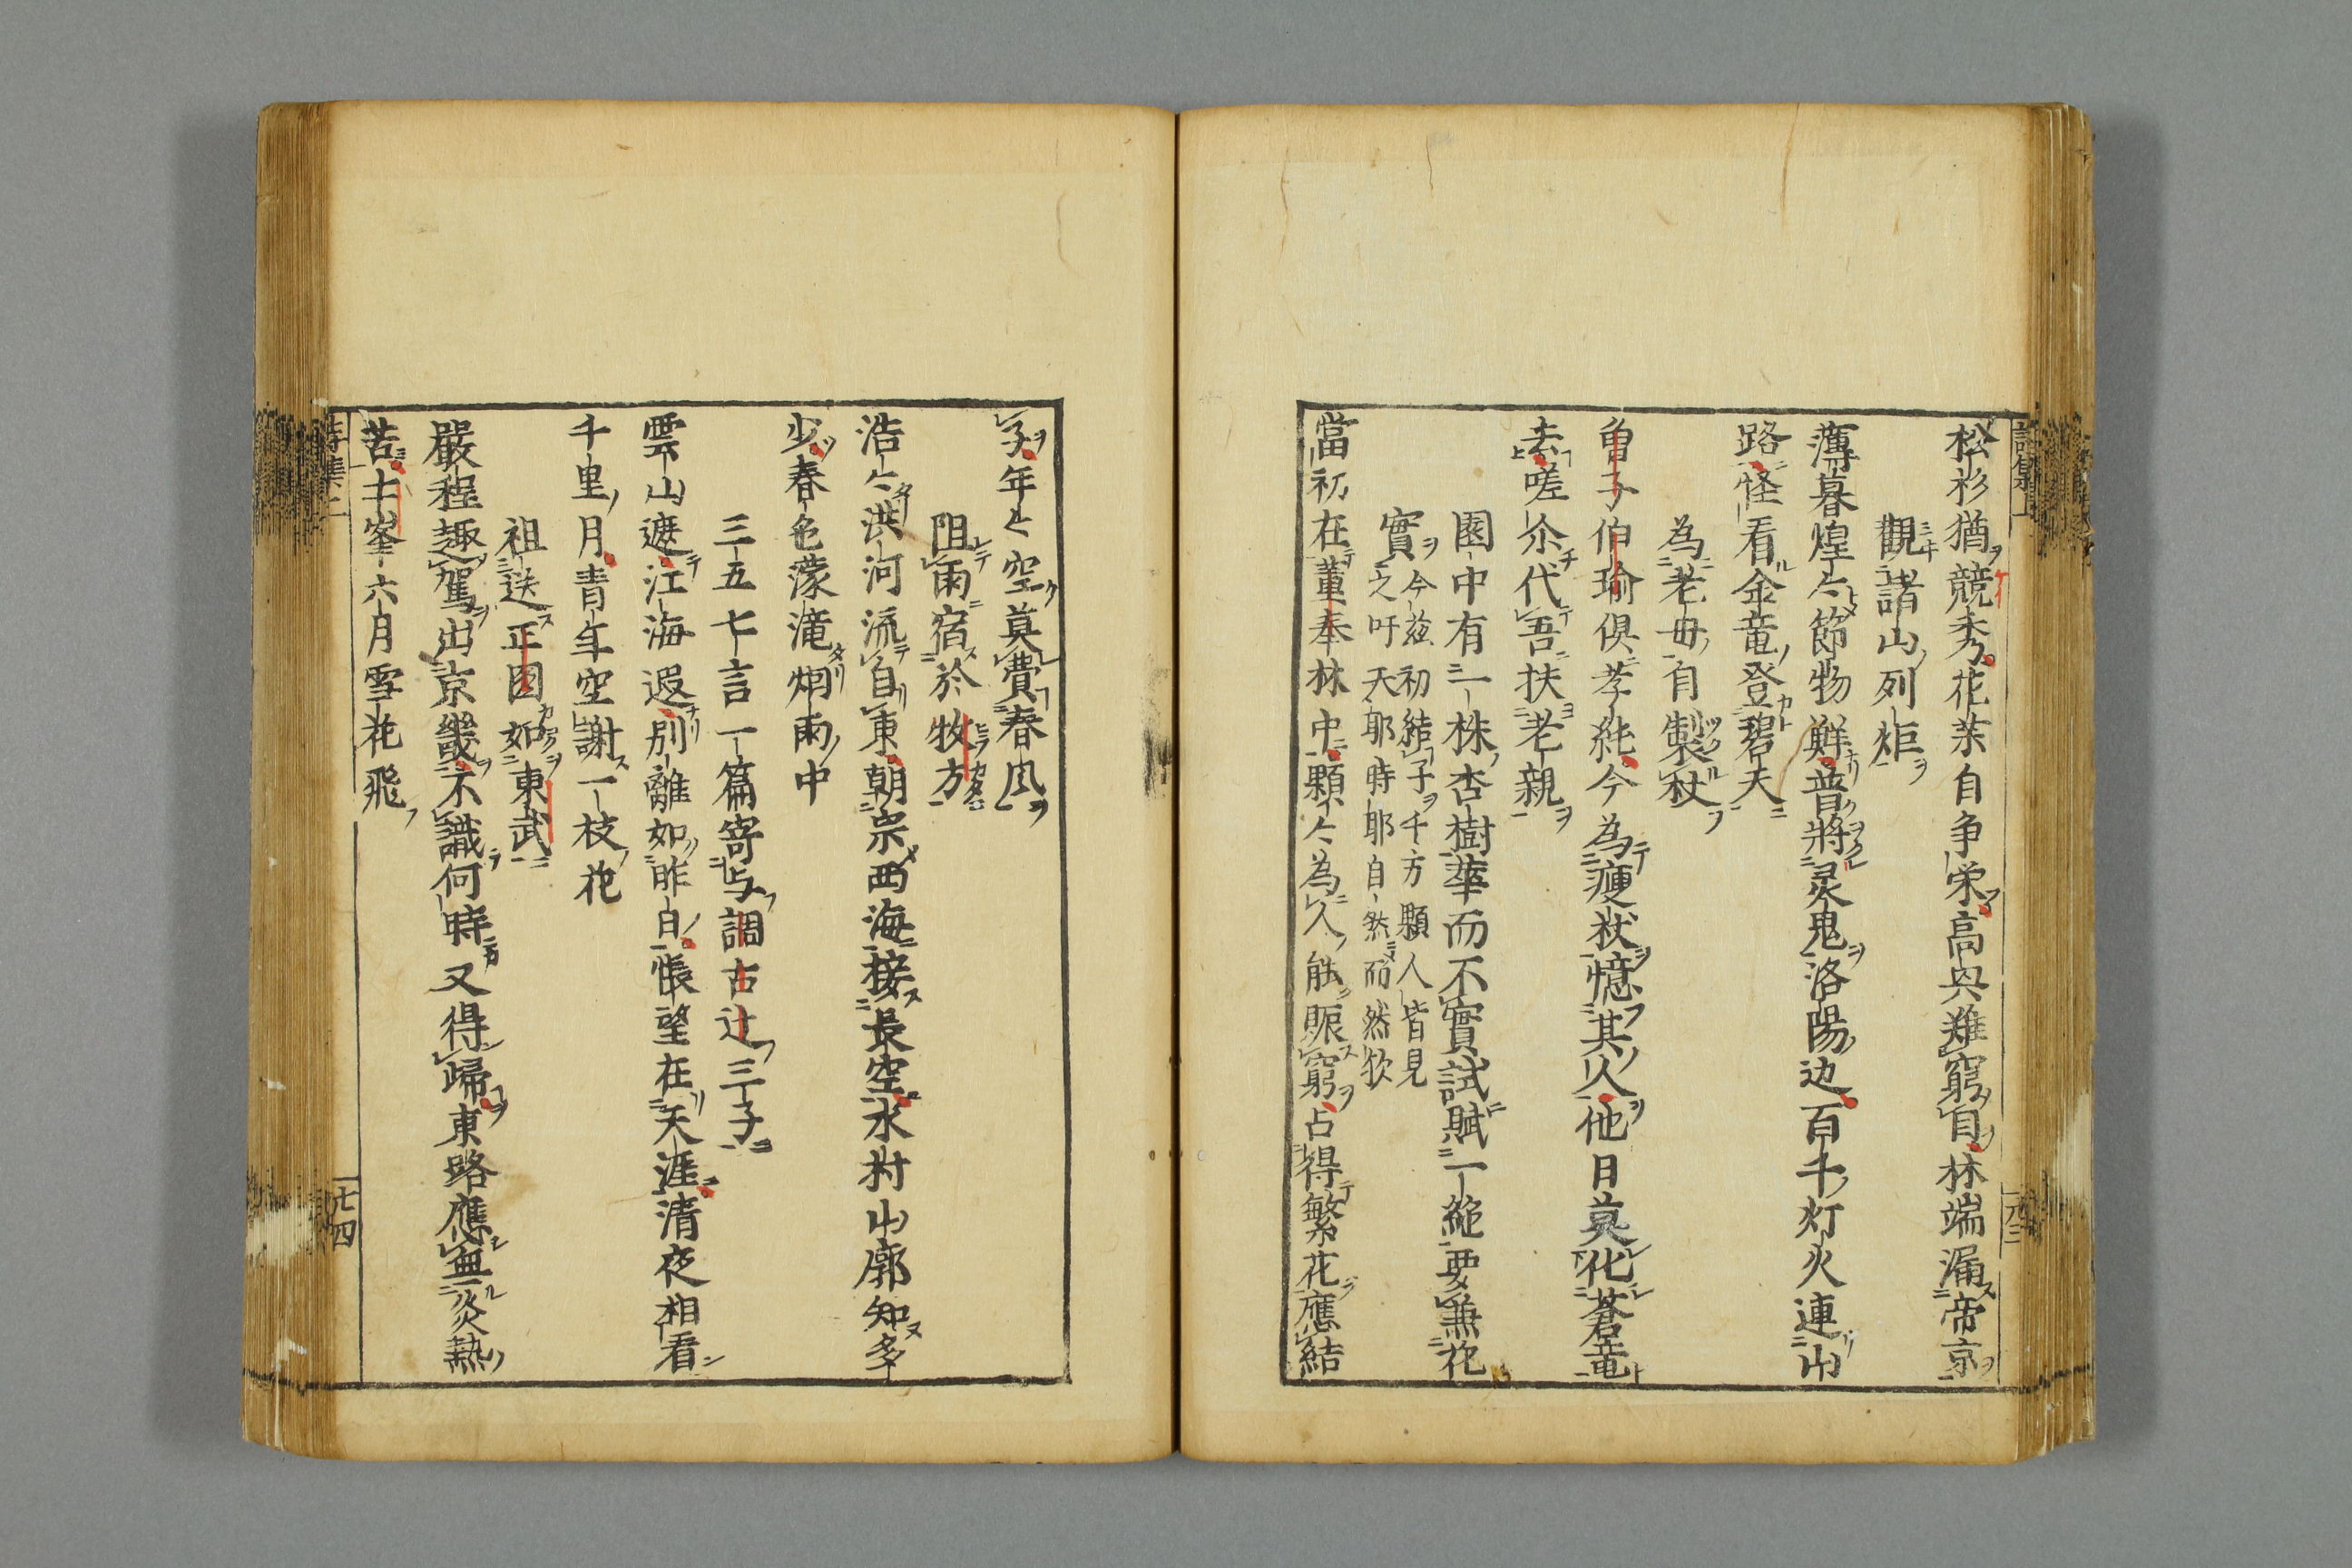 松杉猶競秀花菜自争栄高與難窮目林端漏帝京
觀諸山列炬
薄暮煌々節物鮮普將灵鬼洛陽边百千灯火連山
路怪看金竜登碧天
為老毋自製杖
曽子伯瑜俱孝純今為痩杖憶其人他日莫化蒼竜
去嗟尒代吾扶老親
園中有二株杏樹華而不實試賦一絶要兼花
實
今茲初結子千万顆人皆見
之吁天耶時耶自然而然欤
當初在董奉林中顆々為人能賑窮占得繁花應結
子年々空莫費春風
阻雨宿於牧方
浩々洪河流自東朝宗西海接長空水村山廓知多
少春色濛滝烟雨中
三五七言一篇寄与調古辻三子
雲山遮江海遐別離如昨日悵望在天涯清夜相看
千里月青年空謝一枝花
祖送正因如東武
嚴程趣駕出京畿不識何時又得歸東路應無炎熱
苦士峯六月雪花飛